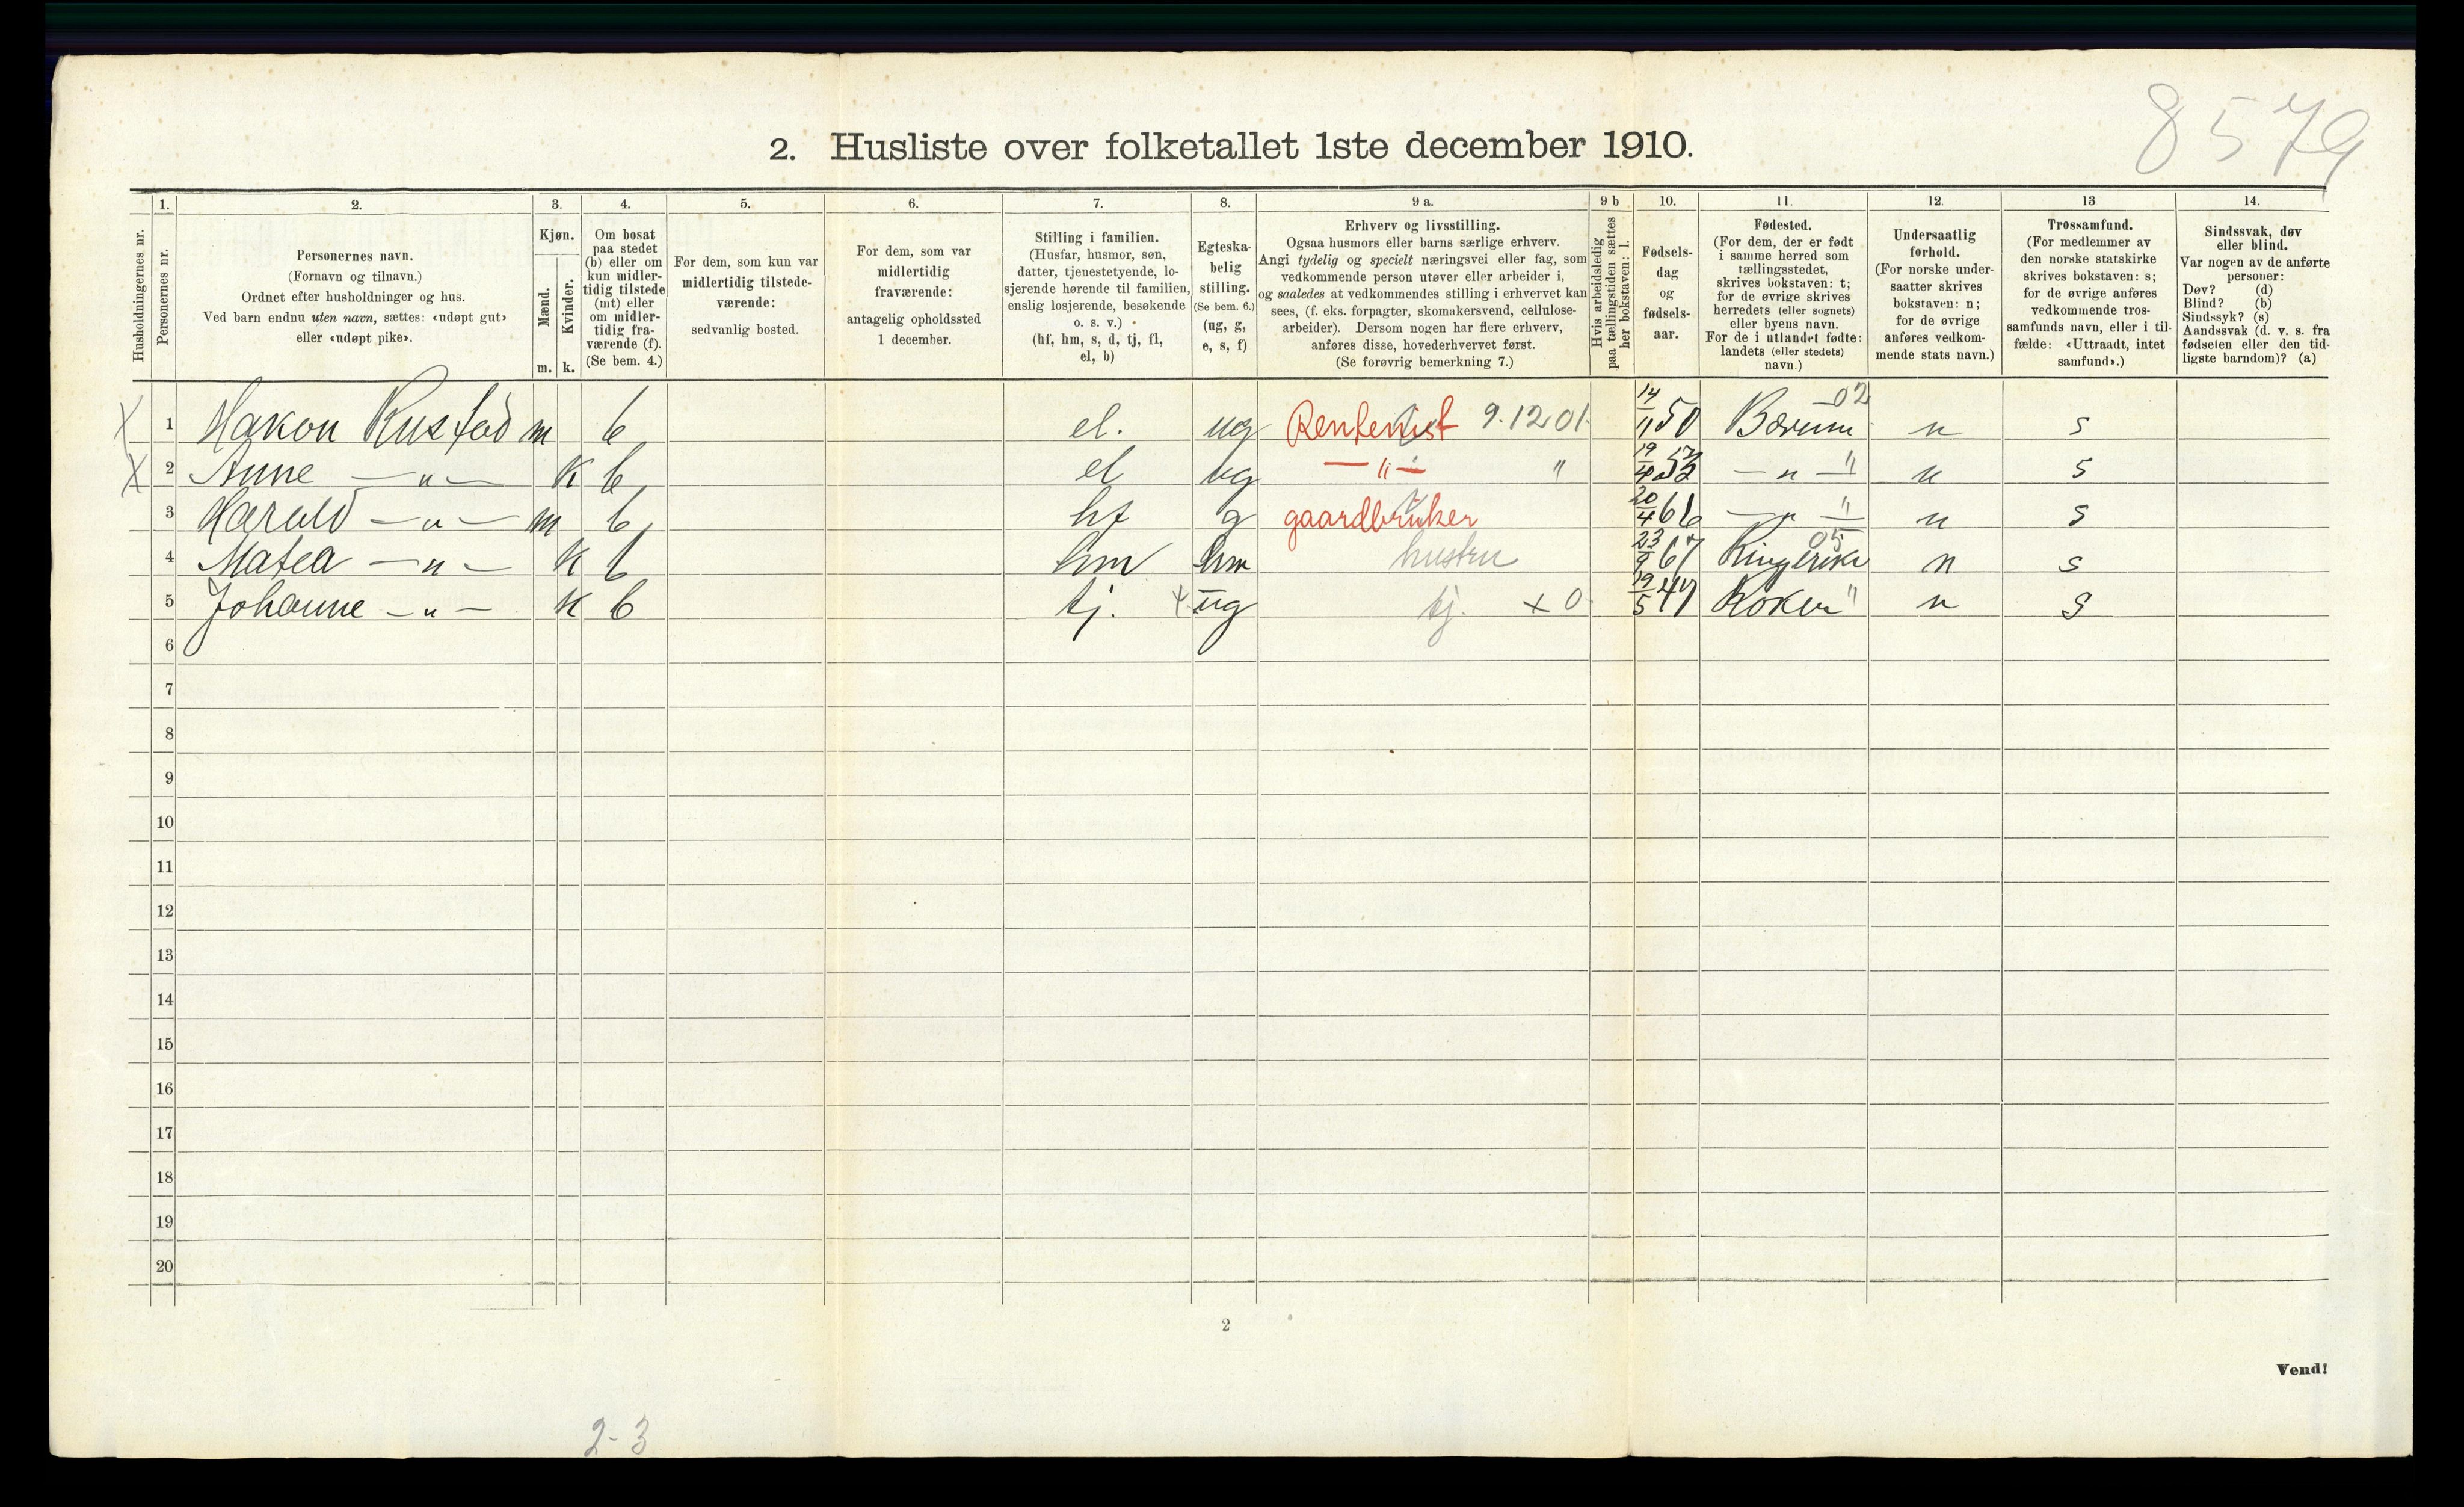 8579
2. Husliste over folketallet 1ste december 1910.
1. 2. 3. 4. 5. 6. 7. 8. 9 a. 9 b 10. 11. 12. 13 14.
Husholdningernes nr.
Personernes nr.
Personernes navn.
(Fornavn og tilnavn.)
Ordnet efter husholdninger og hus.
Ved barn endnu uten navn, sættes: «udøpt gut»
eller «udøpt pike».
Kjøn.
Mænd.
Kvinder.
m. k.
Om bosat
paa stedet
(b) eller om
kun midler-
tidig tilstede
(mt) eller
om midler-
tidig fra-
værende (f).
(Se bem. 4.)
For dem, som kun var
midlertidig tilstede-
værende:
sedvanlig bosted.
For dem, som var
midlertidig
fraværende:
antagelig opholdssted
1 december.
Stilling i familien.
(Husfar, husmor, søn,
datter, tjenestetyende, lo-
sjerende hørende til familien,
enslig losjerende, besøkende
o. s. v.)
(hf, hm, s, d, tj, fl,
el, b)
Egteska-
belig
stilling.
(Se bem. 6.)
(ug, g,
e, s, f)
Erhverv og livsstilling.
Ogsaa husmors eller barns særlige erhverv.
Angi tydelig og specielt næringsvei eller fag, som
vedkommende person utøver eller arbeider i,
og saaledes at vedkommendes stilling i erhvervet kan
sees, (f. eks. forpagter, skomakersvend, cellulose-
arbeider). Dersom nogen har flere erhverv,
anføres disse, hovederhvervet først.
(Se forøvrig bemerkning 7.)
Hvis arbeidsledig
paa tællingstiden sættes
her bokstaven: l.
Fødsels-
dag
og
fødsels-
aar.
Fødested.
(For dem, der er født
i samme herred som
tællingsstedet,
skrives bokstaven: t;
for de øvrige skrives
herredets (eller sognets)
eller byens navn.
For de i utlandet fødte:
landets (eller stedets)
navn.)
Undersaatlig
forhold.
(For norske under-
saatter skrives
bokstaven: n;
for de øvrige
anføres vedkom-
mende stats navn.)
Trossamfund.
(For medlemmer av
den norske statskirke
skrives bokstaven: s;
for de øvrige anføres
vedkommende tros-
samfunds navn, eller i til-
fælde: «Uttraadt, intet
samfund».)
Sindssvak, døv
eller blind.
Var nogen av de anførte
personer:
Døv? (d)
Blind? (b)
Sindssyk? (s)
Aandssvak (d. v. s. fra
fødselen eller den tid-
ligste barndom)? (a)
X 1 Hakon Rustad m b el. ug Rentenist 9.12 01 14/11 50 Bærum 02 n s
X 2 Anne —„— k b el ug —„— " 19/4 —„— " n s
3 Harald —„— m b hf g gaardbruker 20/4 66 —„— " n s
4 Matea —„— k b hm hm hustru 23/9 67 Ringerike 05 n s
5 Johanne —„— k b tj. ug tj. x 0 19/5 47 " n s
6
7
8
9
10
11
12
13
14
15
16
17
18
19
20
2
Vend!
2-3